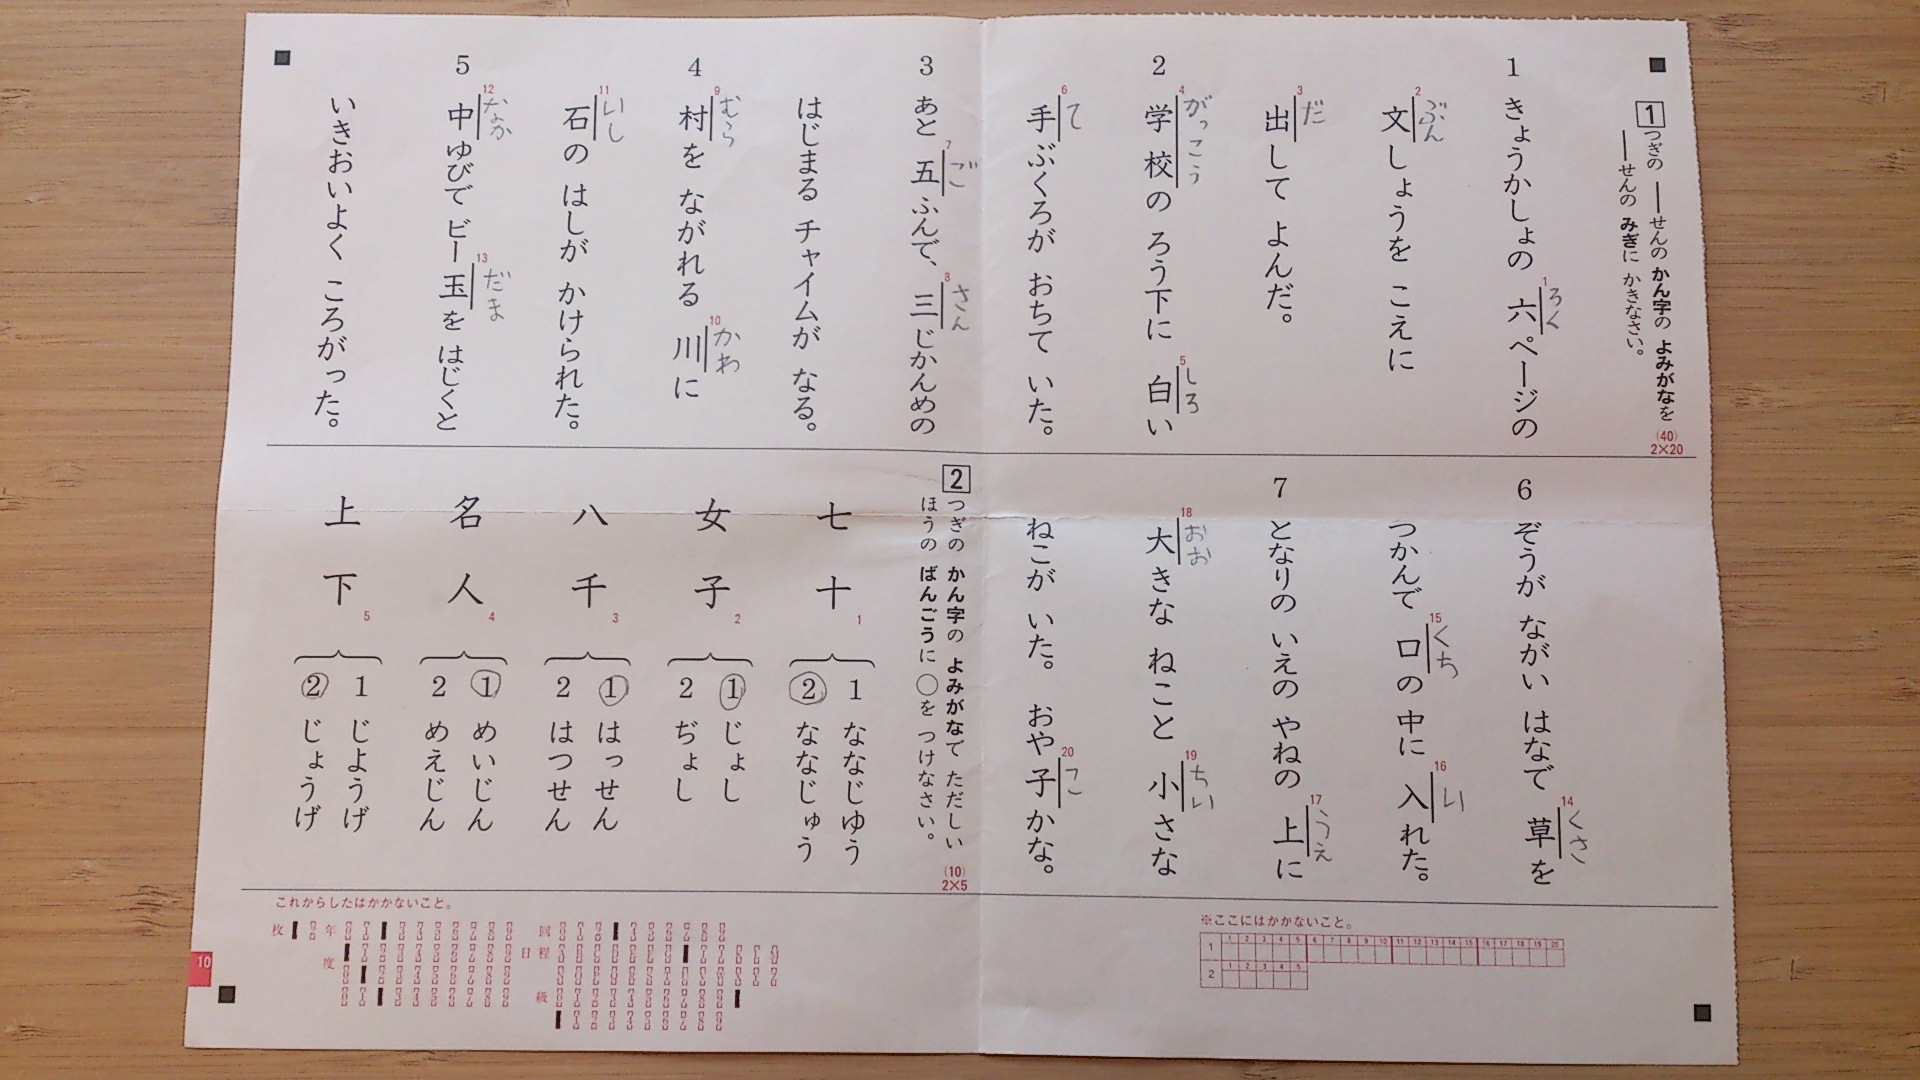 1
つぎの ―せんの かん字の よみがなを
―せんの みぎに かきなさい。
(40)
2×20
1 きょうかしょの 六ページの
1 ろく
文しょうを こえに
2 ぶん
出して よんだ。
3 だ
2 学校の ろう下に 白い
4 がっこう
5 しろ
手ぶくろが おちて いた。
6 て
3 あと 五ふんで、三じかんめの
7 ご
8 さん
はじまる チャイムが なる。
4 村を ながれる 川に
9 むら
10 かわ
石の はしが かけられた。
11 いし
5 中ゆびで ビー玉を はじくと
12 なか
13 だま
いきおいよく ころがった。
6 ぞうが ながい はなで 草を
14 くさ
つかんで 口の 中に 入れた。
15 くち
16 い
7 となりの いえの やねの 上に
17 うえ
大きな ねこと 小さな
18 おお
19 ちい
ねこが いた。 おや子かな。
20 こ
2
つぎの かん字の よみがなで ただしい
ほうの ばんごうに ○を つけなさい。
(10)
2×5
七十 1
1 ななじゆう
② ななじゅう
女子 2
① じょし
2 ぢょし
八千 3
① はっせん
2 はつせん
名人 4
① めいじん
2 めえじん
上下 5
1 じようげ
② じょうげ
※ここにはかかないこと。
1 1 2 3 4 5 6 7 8 9 10 11 12 13 14 15 16 17 18 19 20
2 1 2 3 4 5
これからしたはかかないこと。
枚
年度
回
日程
級
10